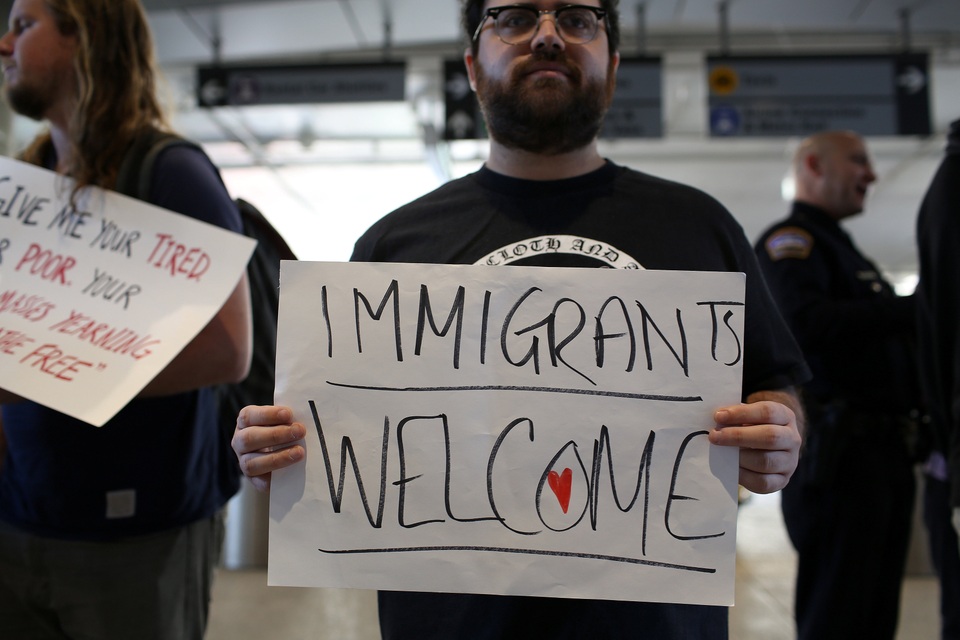 GIVE ME YOUR TIRED,
POOR. YOUR
MASSES YEARNING
FREE"
CLOTH AND
IMMIGRANTS
WELCOME